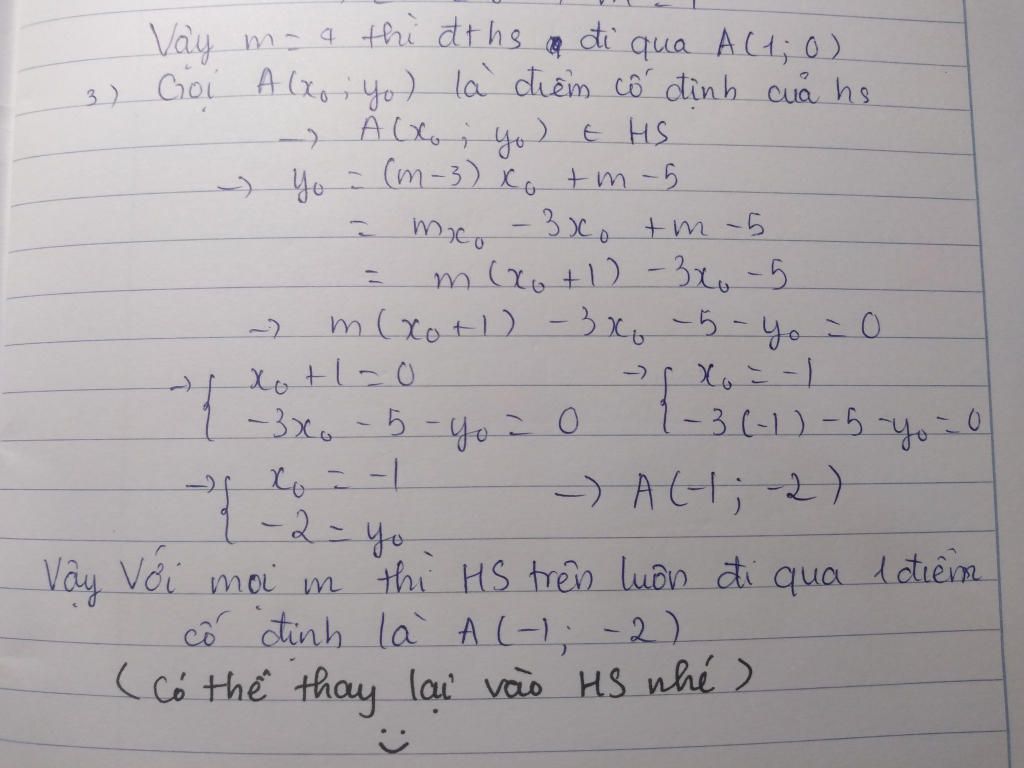 Vậy m = 4 thì đths đi qua A(1; 0)
3) Gọi A(x₀; y₀) là điểm cố định của hs
→ A(x₀; y₀) ∈ HS
→ y₀ = (m-3) x₀ + m - 5
= mx₀ - 3x₀ + m - 5
= m(x₀+1) - 3x₀ - 5
→ m(x₀+1) - 3x₀ - 5 - y₀ = 0
→ { x₀ + 1 = 0 → { x₀ = -1
-3x₀ - 5 - y₀ = 0 -3(-1) - 5 - y₀ = 0
→ { x₀ = -1 → A(-1; -2)
-2 = y₀
Vậy Với mọi m thì HS trên luôn đi qua 1 điểm
cố định là A(-1; -2)
(Có thể thay lại vào HS nhé)